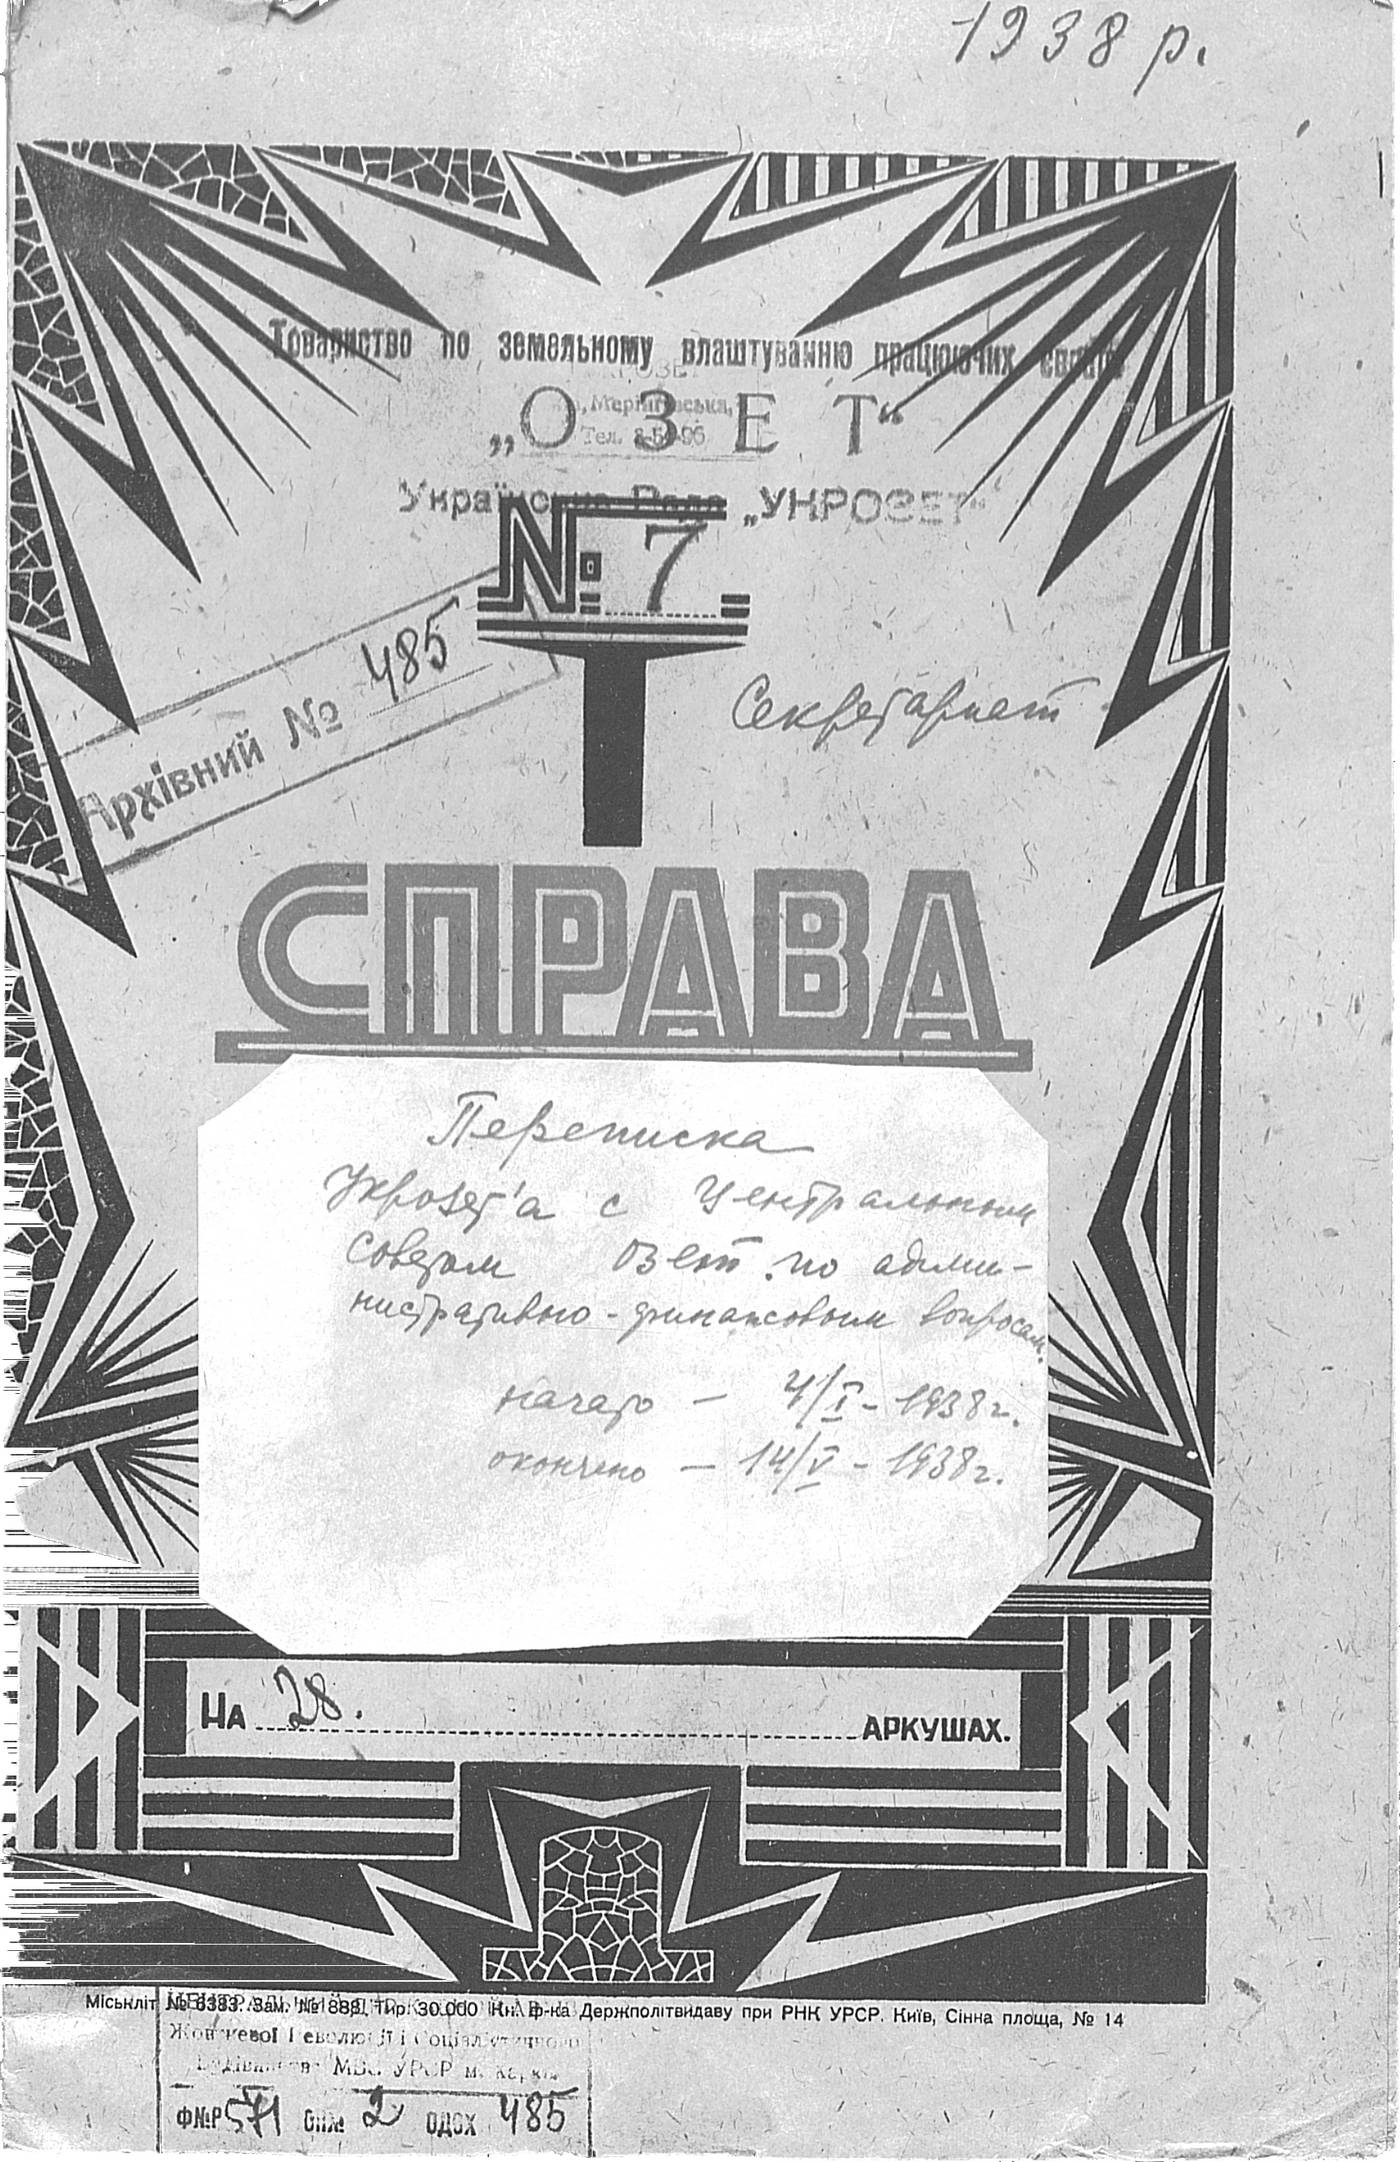 1938 р.
Товариство по земельному влаштуванню працюючих євреїв
„ОЗЕТ“
Тел.
Українська Рада „УКРОЗЕТ“
№ 7
Архівний № 485
Секретариат
СПРАВА
Переписка
Укрозет'а с Центральным
Советом Озет по адми-
нистративно-финансовым вопросам.
начато – 4/I – 1938 г.
окончено – 14/V – 1938 г.
НА 28. АРКУШАХ.
Міськліт № 6383. Зам. № 888. Тир. 30.000 Кн. ф-ка Держполітвидаву при РНК УРСР. Київ, Сінна площа, № 14
Жовтневої Революції і Соціалістичного
Будівництва МВС УРСР м. Харків
Ф№Р 571 ОП№ 2 ОДЗХ 485